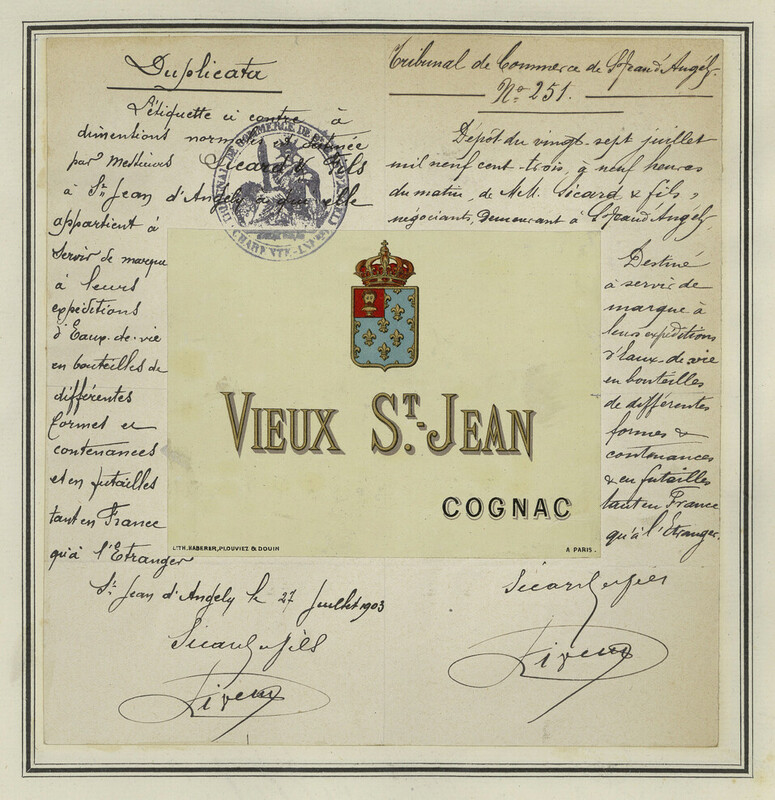 Duplicata
L'étiquette ci contre à
dimentions normales est destinée
par Messieurs Sicard & Fils
à St Jean d'Angely à qui elle
appartient à
servir de marque
à leurs
expéditions
d'Eaux-de-vie
en bouteilles de
différentes
formes et
contenances
et en futailles
tant en France
qu'à l'Etranger
St Jean d'Angely le 27 Juillet 1903
Sicard et fils
Tribunal de Commerce de St Jean d'Angély.
No 251.
Dépôt du vingt-sept juillet
mil neuf cent-trois, à neuf heures
du matin, de M.M. Sicard & fils,
négociants, demeurant à St Jean d'Angély.
Destiné
à servir de
marque à
leurs expéditions
d'Eaux-de-vie
en bouteilles
de différentes
formes &
contenances
& en futailles
tant en France
qu'à l'Etranger.
Sicard et fils
TRIBUNAL DE COMMERCE DE ST JEAN D'ANGELY
CHARENTE-INFRE
VIEUX ST-JEAN
COGNAC
LITH. HABERER, PLOUVIEZ & DOUIN
A PARIS.